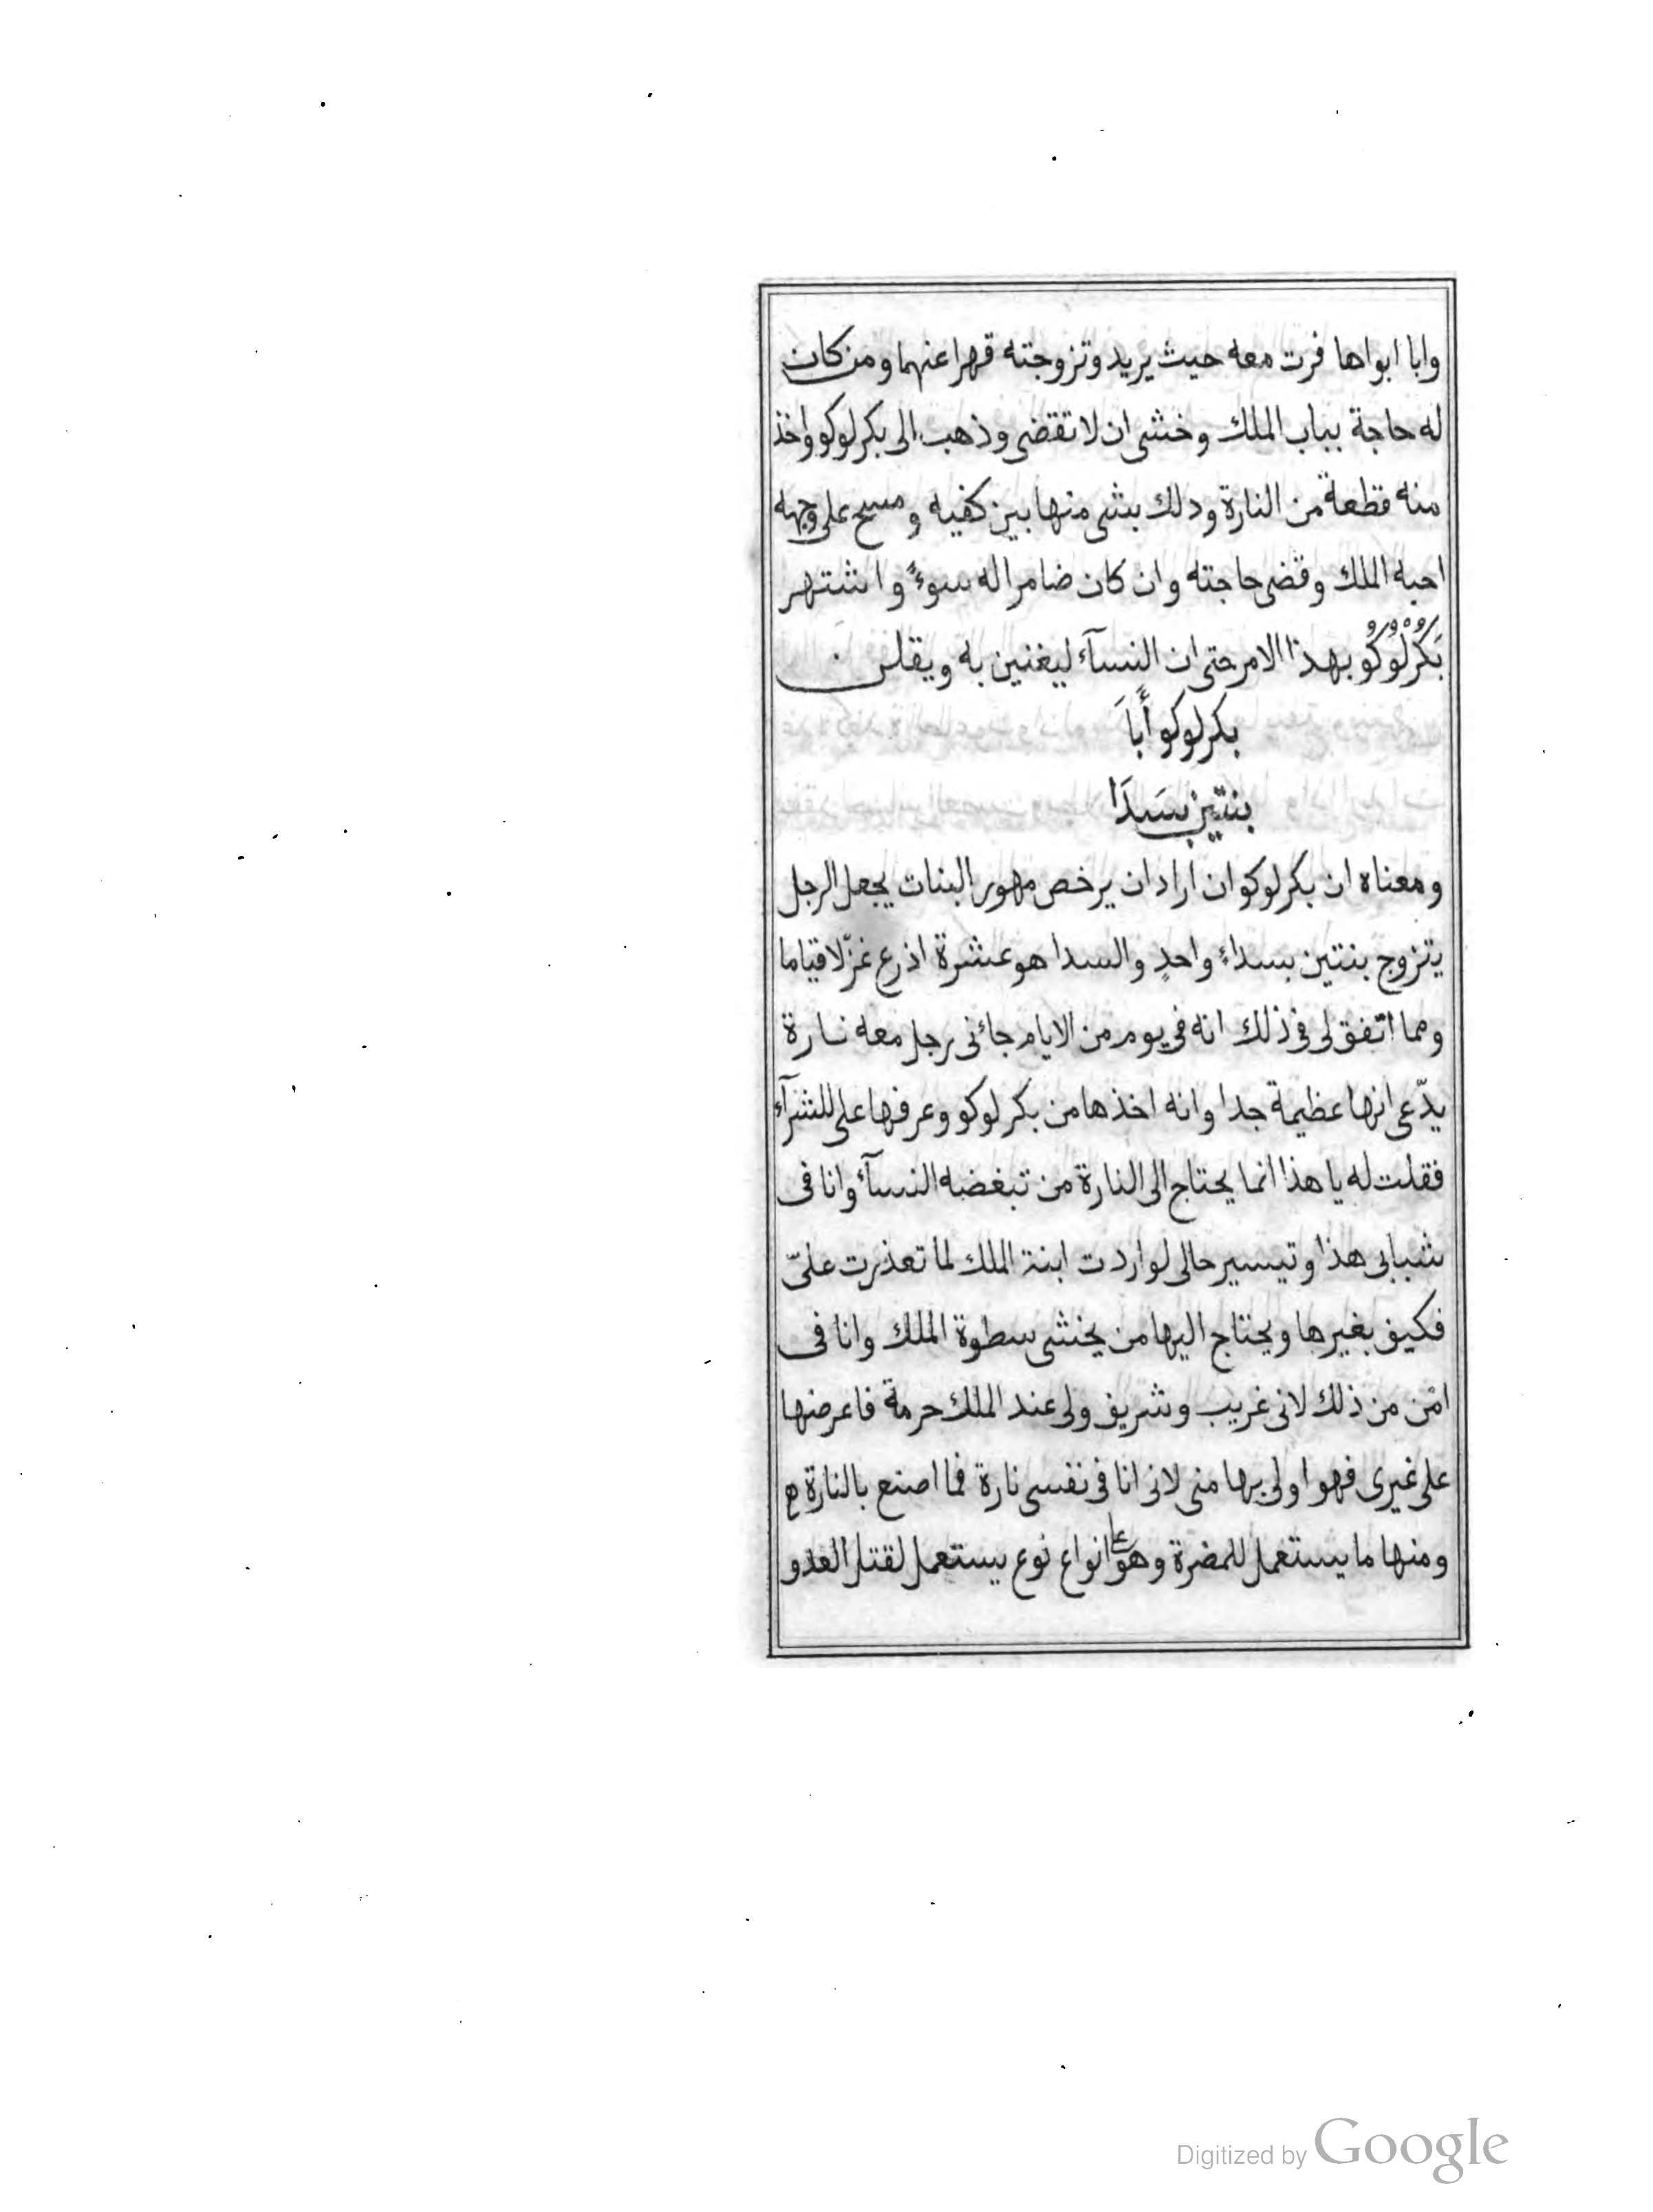 وابا ابواها فرت معه حيث يريد وتزوجته قهرا عنهما ومن كان
له حاجة بباب الملك وخشى ان لا تقضى وذهب الى بكرلوكو واخذ
منه قطعة من النارة ودلك بشى منها بين كفيه ومسح على وجهه
احبه الملك وقضى حاجته وان كان ضامرا له سوءً واشتهر
بَكُرْلُوكُو بهذا الامر حتى ان النسآء ليغنين به ويقلن
بكرلوكو أَباَ
بنتين بسَدَا
ومعناه ان بكرلوكو ان اراد ان يرخص مهور البنات يجعل الرجل
يتزوج بنتين بسداءٍ واحدٍ والسدا هو عشرة اذرع غزلا قياما
ومما اتفق لى فى ذلك انه فى يوم من الايام جائنى رجل معه نارة
يدّعى انها عظيمة جدا وانه اخذها من بكرلوكو وعرفها على للشرآء
فقلت له يا هذا انما يحتاج الى النارة من تبغضه النسآء وانا فى
شبابى هذا وتيسير حالى لو اردت ابنة الملك لما تعذرت علىّ
فكيف بغيرها ويحتاج اليها من يخشى سطوة الملك وانا فى
امن من ذلك لانى غريب وشريف ولى عند الملك حرمة فاعرضها
على غيرى فهو اولى بها منى لانى انا فى نفسى نارة فما اصنع بالنارة
ومنها ما يستعمل للمضرة وهو على انواع نوع يستعمل لقتل العدو
Digitized by Google